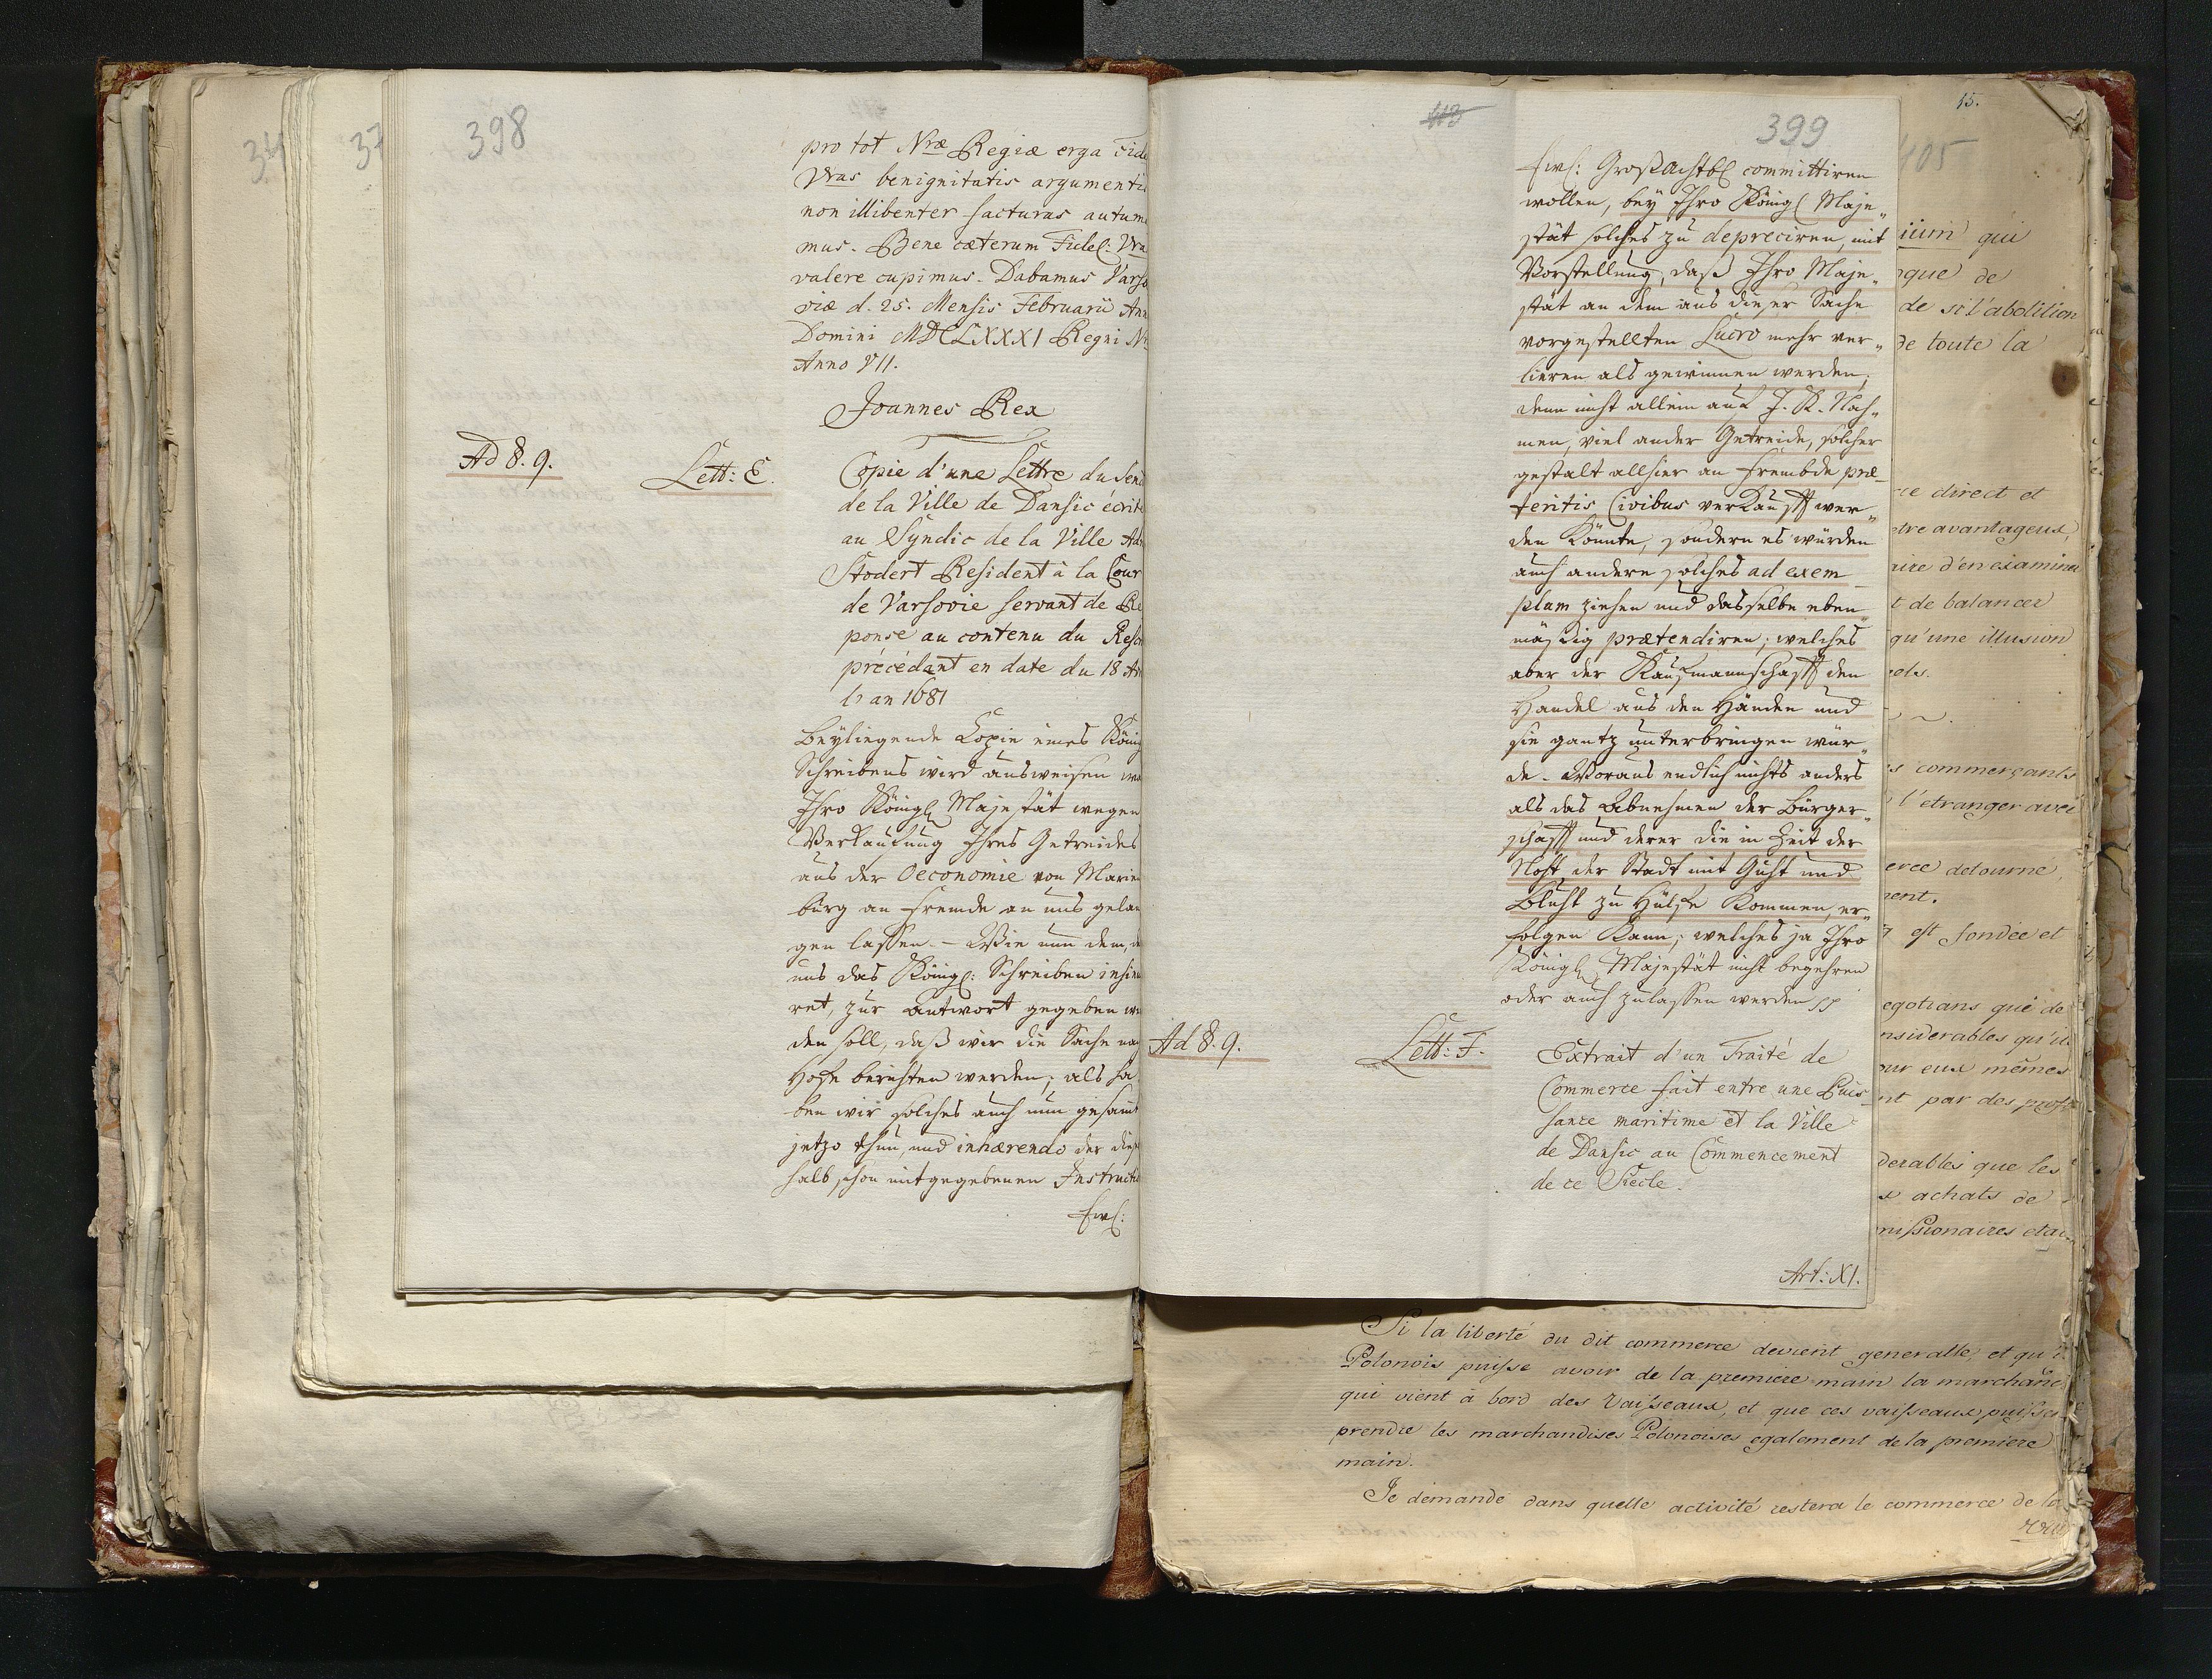 398
pro tot Nræ Regiæ erga
Vras benignitatis argumentis
non illibenter facturas autuma
mus. Bene cæterum Fidel: Vra
valere cupimus. Dabamus Varso
viæ d. 25. Mensis Februarii Ann
Domini MDCLXXXI Regni
Anno VII.
Joannes Rex
Ad 8. 9.
Lett: E.
Copie d'une Lettre du
de la Ville de Dansic écrite
au Syndic de la Ville
Stodert Resident à la Cour
de Varsovie servant de Re
ponse au contenu du
précédant en date du 18
l'an 1681
Beyliegende Copie eines König
Schreibens wird ausweisen
Ihro Königl Majestät wegen
Verkaufung Ihres Getreides
aus der Oeconomie von Marien
burg an Fremde an uns gelan
gen lassen. - Wie nun dem,
uns das Königl: Schreiben
ret, zur Antwort gegeben
den soll, daß wir die Sache
Hofe berichten werden; als ha
ben wir solches auch nun
jetzo thun, und inhærendo der
halb schon mitgegebenen
Ew:
113
399
Ew: GroßAchtb committiren
wollen, bey Ihro Königl Maje„
stät solches zu depreciren, mit
Vorstellung, daß Ihro Maje„
stät an dem aus dieser Sache
vorgestellten Lucro mehr ver„
lieren als gewinnen werden;
denn nicht allein auf J. K. Nah„
men, viel ander Getreide, solcher
gestalt allhier an Frembde præ_
teritis Civibus verkaufft wer„
den könnte, sondern es würden
auch andere solches ad exem_
plum ziehen und dasselbe eben„
mäßig prætendiren; welches
aber der Kaufmannschafft den
Handel aus den Händen und
sie gantz unterbringen wür„
de. Woraus endlich nichts anders
als das Abnehmen der Bürger„
schafft und derer die in Zeit der
Noht der Stadt mit Guht und
Bluht zu Hülfe kommen, er„
folgen kann; welches ja Ihro
Königl Majestät nicht begehren
oder auch zulassen werden pp
Ad 8. 9.
Lett: F.
Extrait d'un Traité de
Commerce fait entre une Puis_
sance maritime et la Ville
de Dansic au Commencement
de ce Siecle.
Art: XI.
15.
405
qui
que de
de si l'abolition
de toute la
direct et
avantageus,
d'en examiner
de balancer
qu'une illusion
commerçants
l'etranger avec
detourne
est fondée et
que de
considerables qu'il
eux mêmes
par des
que les
achats de
Si la liberté du dit commerce devient generalle, et qu
Polonois puisse avoir de la premiere main la
qui vient à bord des Vaisseaux, et que ces vaisseaux
prendre les marchandises Polonoises egalement de la premiere
main.
Je demande dans quelle activité restera le commerce de la